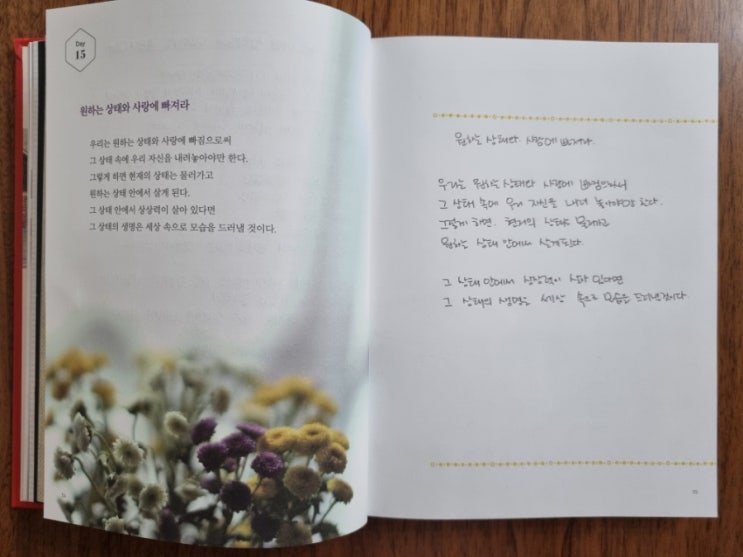 Day
15
원하는 상태와 사랑에 빠져라
우리는 원하는 상태와 사랑에 빠짐으로써
그 상태 속에 우리 자신을 내려놓아야만 한다.
그렇게 하면 현재의 상태는 물러가고
원하는 상태 안에서 살게 된다.
그 상태 안에서 상상력이 살아 있다면
그 상태의 생명은 세상 속으로 모습을 드러낼 것이다.
원하는 상태와 사랑에 빠져라.
우리는 원하는 상태와 사랑에
그 상태 속에 우리 자신을 내려 놓아야만 한다.
그렇게 하면 현재의 상태는 물러가고
원하는 상태 안에서 살게된다.
그 상태 안에서 상상력이 살아 있다면
그 상태의 생명은 세상 속으로 모습을 드러낼것이다.